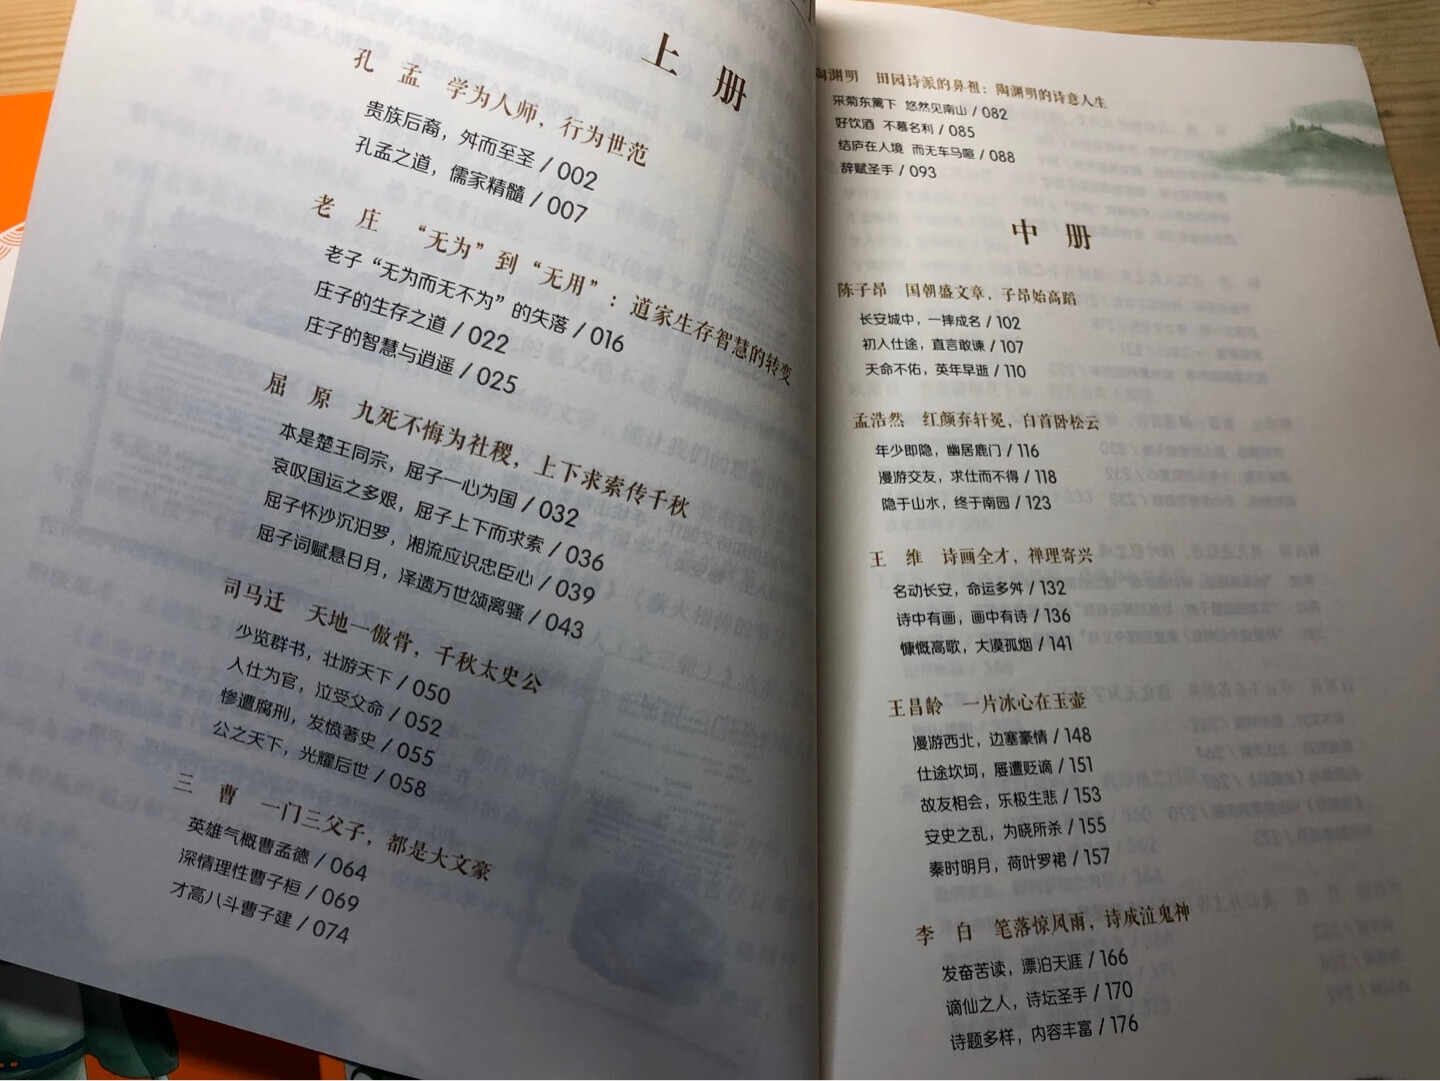 上 册
孔 孟 学为人师，行为世范
贵族后裔，舛而至圣 / 002
孔孟之道，儒家精髓 / 007
老 庄 “无为”到“无用”：道家生存智慧的转变
老子“无为而无不为”的失落 / 016
庄子的生存之道 / 022
庄子的智慧与逍遥 / 025
屈 原 九死不悔为社稷，上下求索传千秋
本是楚王同宗，屈子一心为国 / 032
哀叹国运之多艰，屈子上下而求索 / 036
屈子怀沙沉汨罗，湘流应识忠臣心 / 039
屈子词赋悬日月，泽遗万世颂离骚 / 043
司马迁 天地一傲骨，千秋太史公
少览群书，壮游天下 / 050
入仕为官，泣受父命 / 052
惨遭腐刑，发愤著史 / 055
公之天下，光耀后世 / 058
三 曹 一门三父子，都是大文豪
英雄气概曹孟德 / 064
深情理性曹子桓 / 069
才高八斗曹子建 / 074
陶渊明 田园诗派的鼻祖：陶渊明的诗意人生
采菊东篱下 悠然见南山 / 082
好饮酒 不慕名利 / 085
结庐在人境 而无车马喧 / 088
辞赋圣手 / 093
中 册
陈子昂 国朝盛文章，子昂始高蹈
长安城中，一摔成名 / 102
初入仕途，直言敢谏 / 107
天命不佑，英年早逝 / 110
孟浩然 红颜弃轩冕，白首卧松云
年少即隐，幽居鹿门 / 116
漫游交友，求仕而不得 / 118
隐于山水，终于南园 / 123
王 维 诗画全才，禅理寄兴
名动长安，命运多舛 / 132
诗中有画，画中有诗 / 136
慷慨高歌，大漠孤烟 / 141
王昌龄 一片冰心在玉壶
漫游西北，边塞豪情 / 148
仕途坎坷，屡遭贬谪 / 151
故友相会，乐极生悲 / 153
安史之乱，为晓所杀 / 155
秦时明月，荷叶罗裙 / 157
李 白 笔落惊风雨，诗成泣鬼神
发奋苦读，漂泊天涯 / 166
谪仙之人，诗坛圣手 / 170
诗题多样，内容丰富 / 176